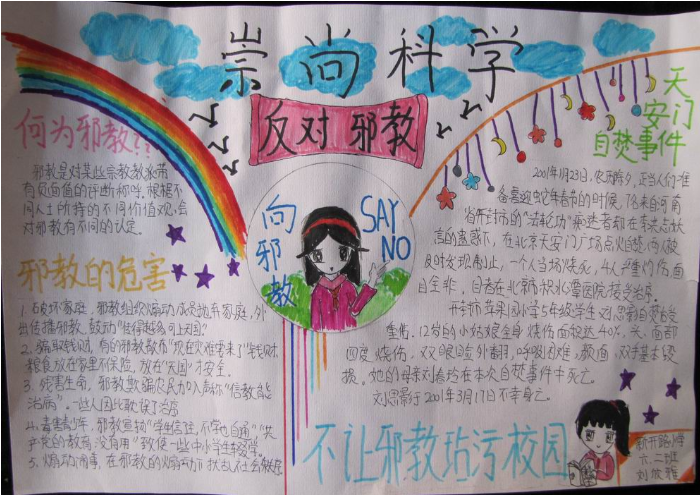 崇尚科学
反对邪教
何为邪教??
邪教是对某些宗教教派带
有负面价值的评断称呼。根据不
同人士所持的不同价值观,会
对邪教有不同的认定。
邪教的危害
1、破坏家庭,邪教组织煽动成员抛弃家庭,外
出传播邪教,鼓动
2、骗取钱财,有的邪教散布
粮食放在家里不保险,放在“天国”才安全.
3、残害生命,邪教欺骗农民加入
治病”。一些人因此耽误了治疗
4、毒害青少年,邪教宣扬“学生信主,不学也自通”“共
产党的教育,没有用”致使一些中小学生辍学。
5、煽动闹事,
向邪教
SAY
NO
天
安门
自焚事件
2001年1月23日,农历除夕,正当人们准
备喜迎蛇年春节的时候,7名来自河南
省开封市的“法轮功”痴迷者却在李洪志妖
言的蛊惑下,在北京天安门广场点火自焚,两人被
及时发现制止,一个人当场烧死,4人严重灼伤,面
目全非,
开封市苹果园小学5年级学生刘思影自焚后
重伤。12岁的小姑娘全身烧伤面积达40%,头、面部
四度烧伤,双眼睑外翻,呼吸困难,毁面,双手基本毁
损。她的母亲刘春玲在本次自焚事件中死亡。
刘思影于2001年3月17日不幸身亡。
不让邪教玷污校园
新开路小学
六二班